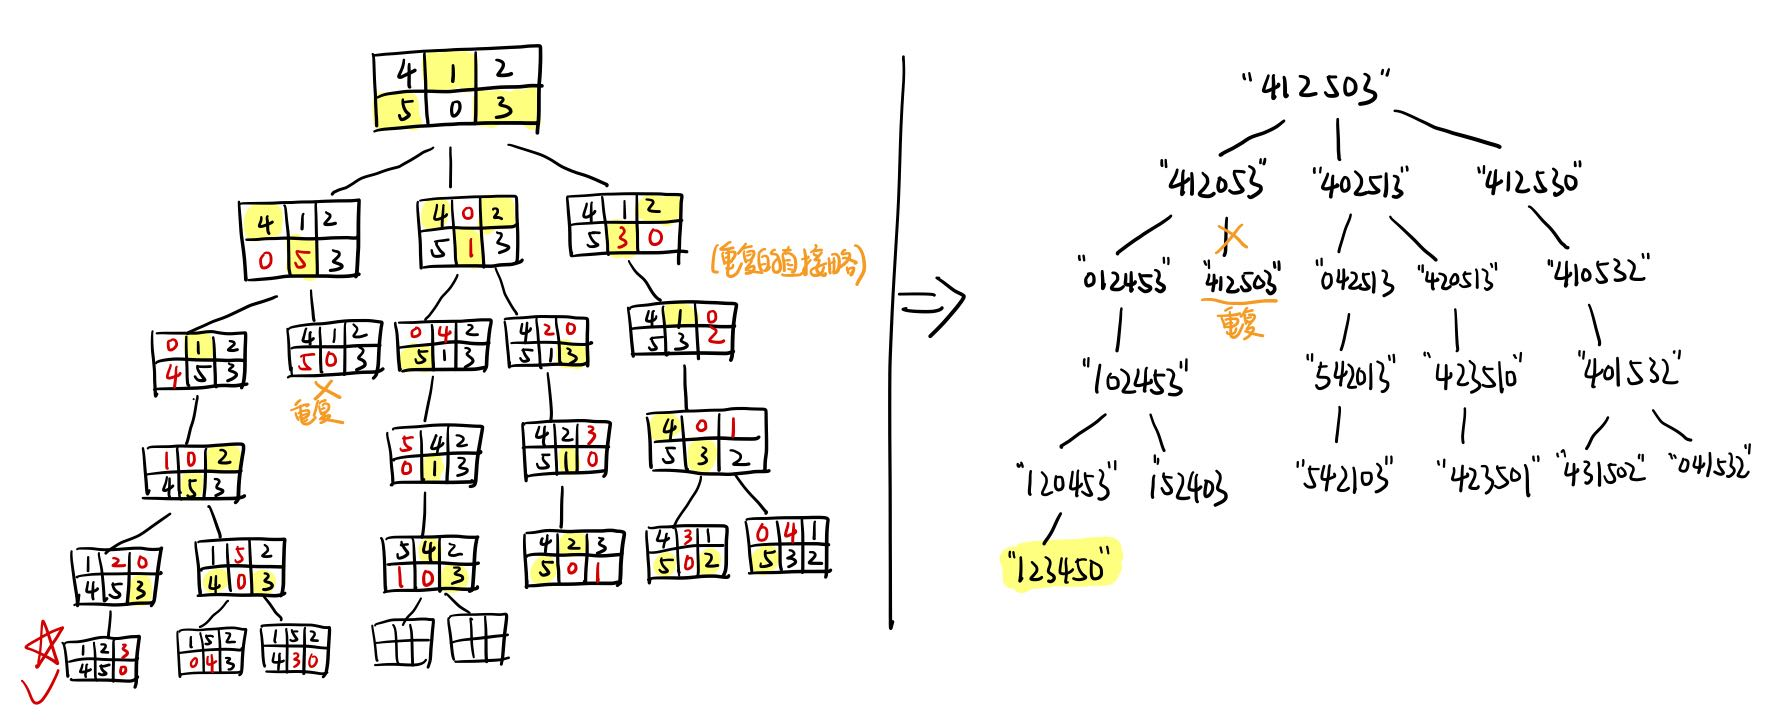 4 1 2
5 0 3
4 1 2
0 5 3
4 0 2
5 1 3
4 1 2
5 3 0
(重复的直接略)
0 1 2
4 5 3
4 1 2
5 0 3
重复
0 4 2
5 1 3
4 2 0
5 1 3
4 1 0
5 3 2
1 0 2
4 5 3
5 4 2
0 1 3
4 2 3
5 1 0
4 0 1
5 3 2
1 2 0
4 5 3
1 5 2
4 0 3
5 4 2
1 0 3
4 2 3
5 0 1
4 3 1
5 0 2
0 4 1
5 3 2
1 2 3
4 5 0
1 5 2
0 4 3
1 5 2
4 3 0
"412503"
"412053" "402513" "412530"
"012453" "412503" "042513 "420513" "410532"
重复
"102453" "542013" "423510" "401532"
"120453" "152403 "542103" "423501" "431502" "041532"
"123450"